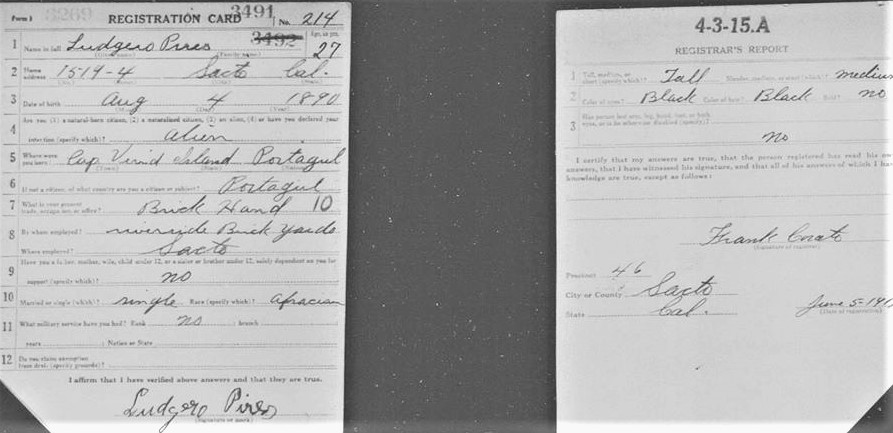 Form 1 3269 REGISTRATION CARD 3491 No. 214
3492
1 Name in full Ludgero Pires Age, in yrs. 27
(Given name) (Family name)
2 Home address 1519-4 Sacto Cal.
3 Date of birth Aug 4 1890
(Month) (Day) (Year)
4 Are you (1) a natural-born citizen, (2) a naturalized citizen, (3) an alien, (4) or have you declared your
intention (specify which)? alien
5 Where were you born? Cap Virind Island Portagul
(Town) (State) (Nation)
6 If not a citizen, of what country are you a citizen or subject? Portagul
7 What is your present trade, occupation, or office? Brick Hand 10
8 By whom employed? riverside Brick Yards
Where employed? Sacto
9 Have you a father, mother, wife, child under 12, or a sister or brother under 12, solely dependent on you for
support (specify which)? no
10 Married or single (which)? single Race (specify which)? Afracian
11 What military service have you had? Rank no ; branch
years ; Nation or State
12 Do you claim exemption
from draft (specify grounds)?
I affirm that I have verified above answers and that they are true.
Ludgero Pires
(Signature or mark)
4-3-15.A
REGISTRAR'S REPORT
1 Tall, medium, or short (specify which)? Tall Slender, medium, or stout (which)? medium
2 Color of eyes? Black Color of hair? Black Bald? no
3 Has person lost arm, leg, hand, foot, or both
eyes, or is he otherwise disabled (specify)?
no
I certify that my answers are true, that the person registered has read his own
answers, that I have witnessed his signature, and that all of his answers of which I have
knowledge are true, except as follows:
Frank
(Signature of registrar)
Precinct 46
City or County Sacto
State Cal. June 5-191
(Date of registration)